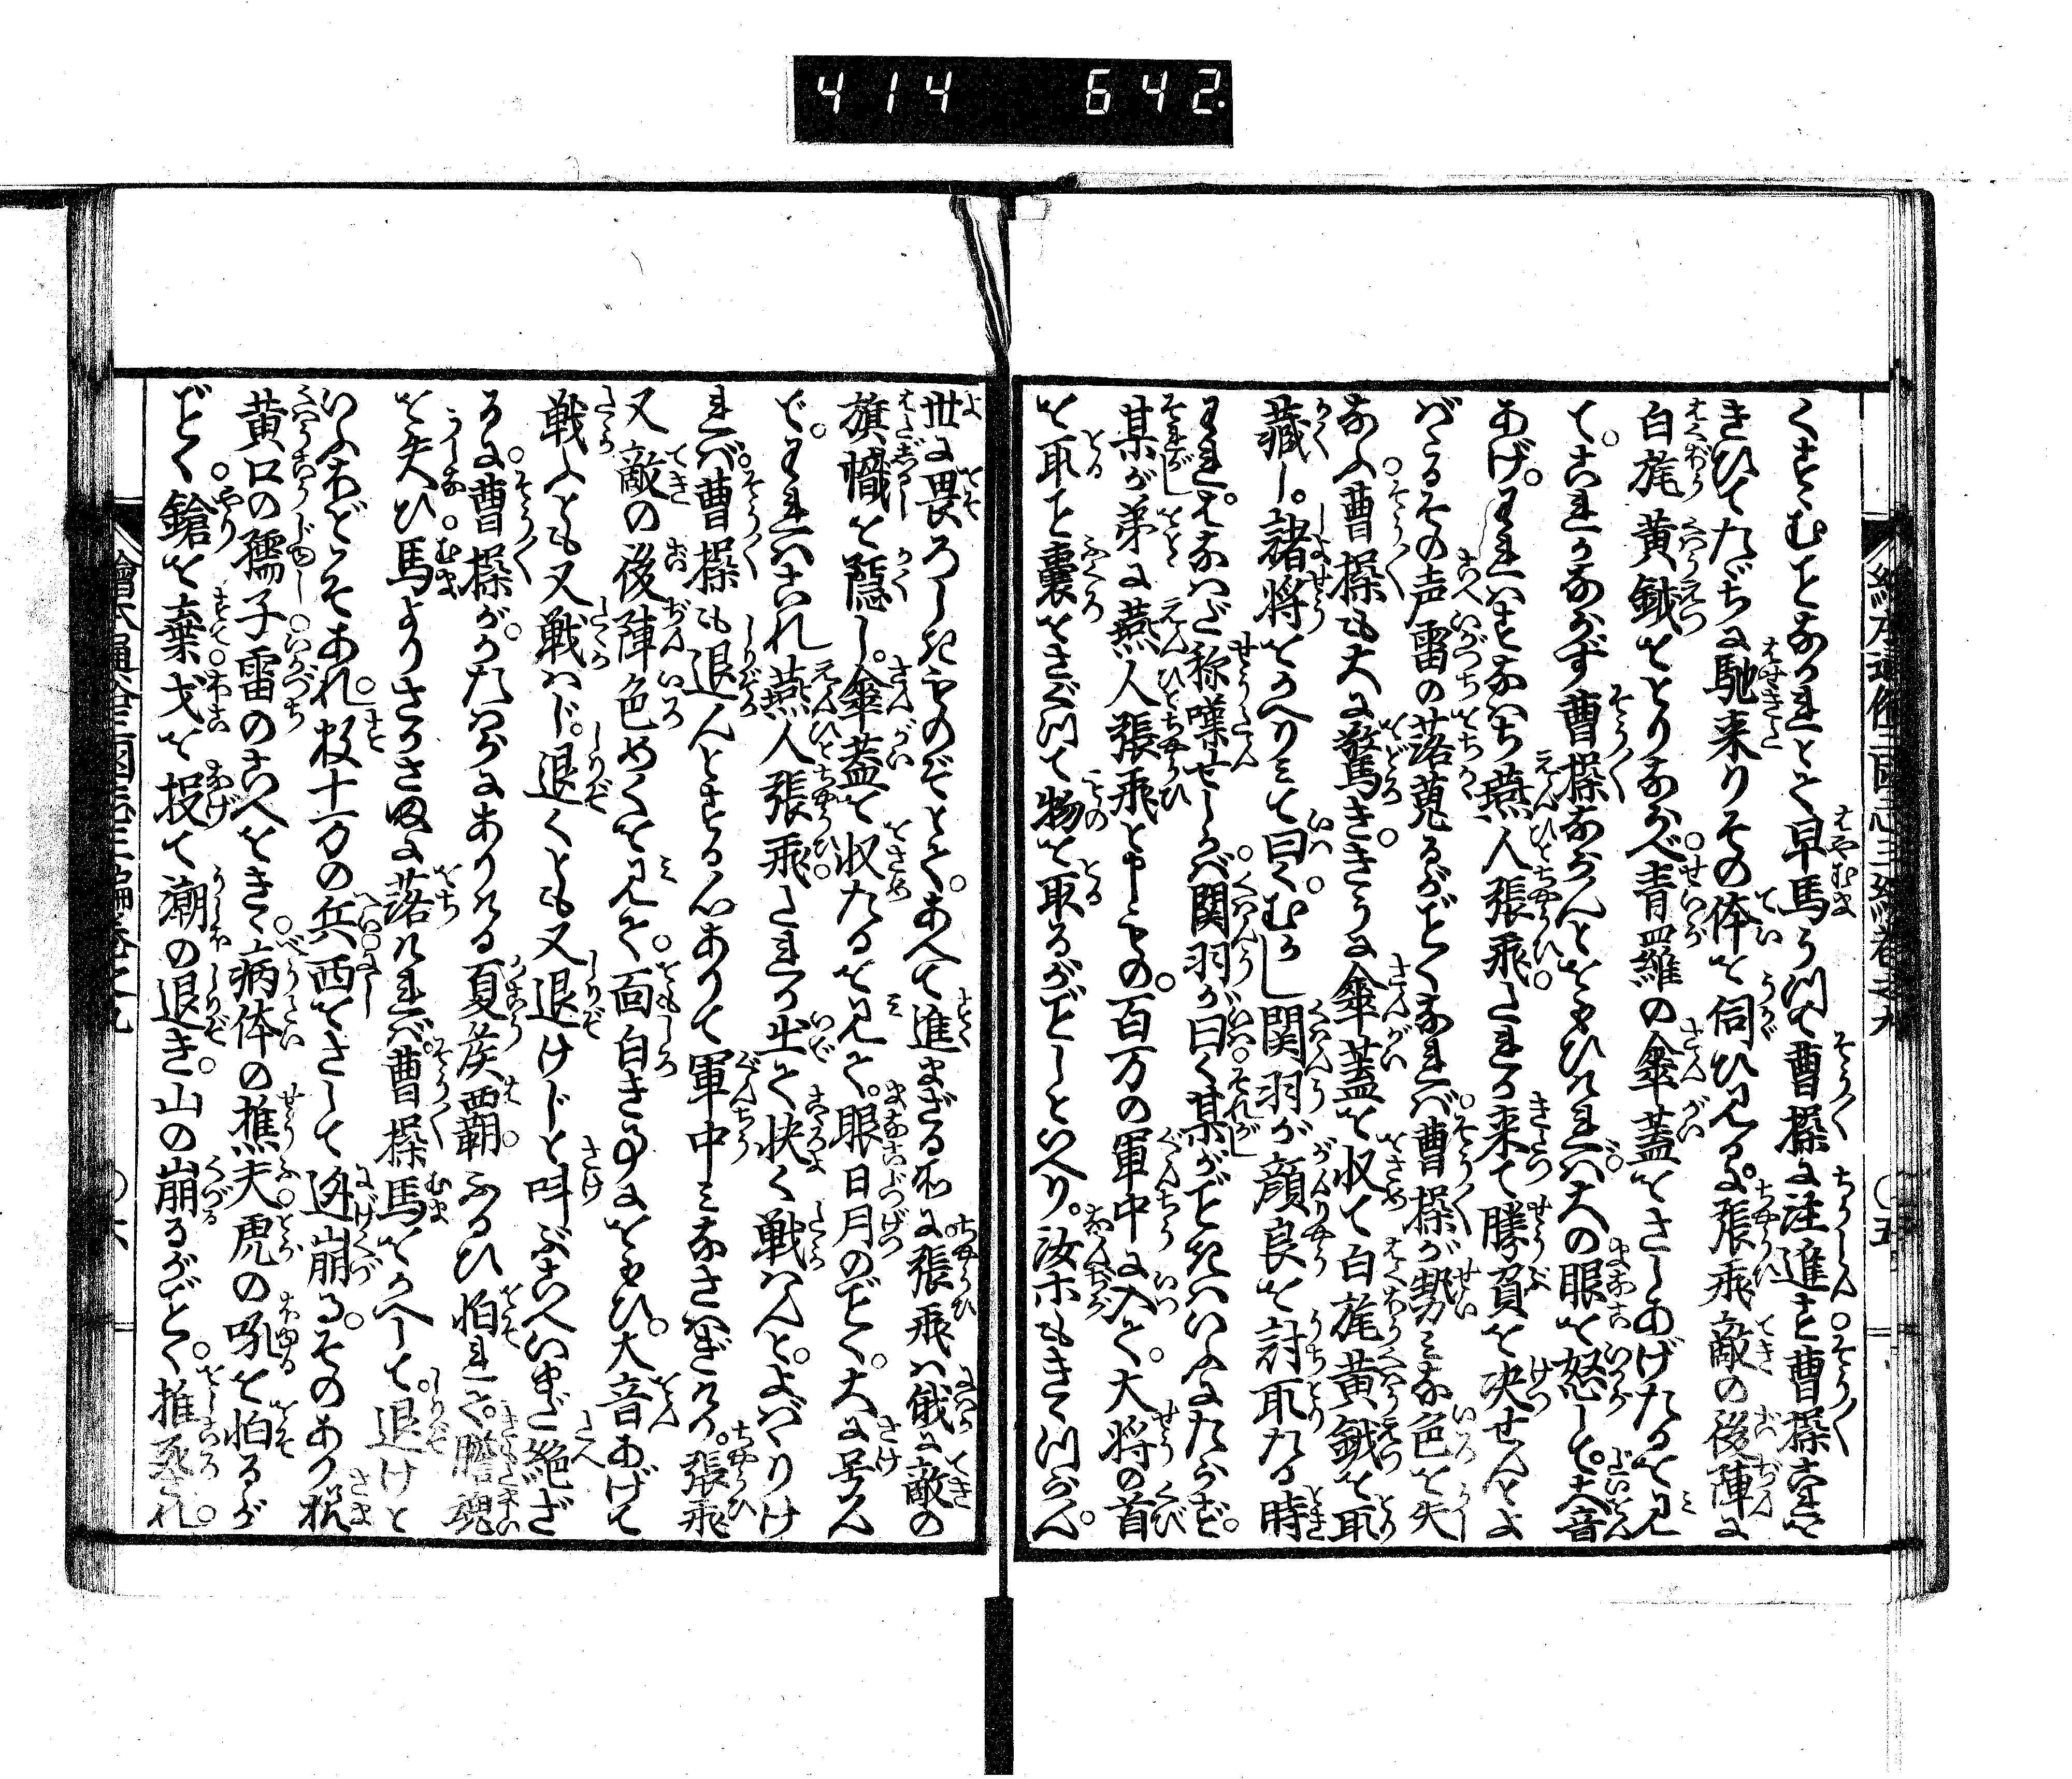 414 642
くすゝむことなかれとて早馬うつて曹操に注進す曹操これを
きひてたゞちに馳来りその体を伺ひ見るに張飛敵の後陣に
白旄黄鉞をとりならべ青羅の傘蓋をさしあげたるを見
て。これかならず曹操ならんとをもひければ。大の眼を怒して。大音
あげ。われはすなはち燕人張飛。たれか来て勝負を决せんとよ
ばゝるその声雷の落蒐るがごとくなれば。曹操が勢みな色を失
なふ。曹操も大に驚き。きうに傘蓋を収て白旄黄鉞を取
藏し。諸将をかへりみて曰く。むかし関羽が顔良を討取たる時
われ。はなはだ称嘆せしかば。関羽が曰く。某がごときはいふにたらず。
某が弟に燕人張飛と申もの。百万の軍中に入て。大将の首
を取こと嚢をさぐつて物を取るがごとしといへり。汝ホもきくつらん。
世に畏ろしきものぞとて。あへて進まざる所に。張飛は俄に敵の
旗幟を隠し。傘蓋を収たるを見て。眼日月のごとく。大に号ん
で。われはこれ燕人張飛。たれか出て快く戦はんと。よばゝりけ
れば。曹操も退んとする心ありて軍中みなさはぎけり。張飛
又敵の後陣色めくを見て。面白き事にをもひ。大音あげて
戦ふとも又戦はじ。退くとも又退けじと呌ぶこへいまだ絶ざ
るに。曹操が。かたはらにありける夏侯覇。ふるひ怕れて。膽魂
を失ひ。馬よりさかさまに落ければ。曹操馬をかへして。退けと
いふほどこそあれ。数十万の兵西をさして迯崩る。そのあり様
黄口の孺子。雷のこへをきゝ。病体の樵夫。虎の吼を怕るが
ごとく。鎗を棄。戈を投て潮の退き。山の崩るがごとく。推亟され